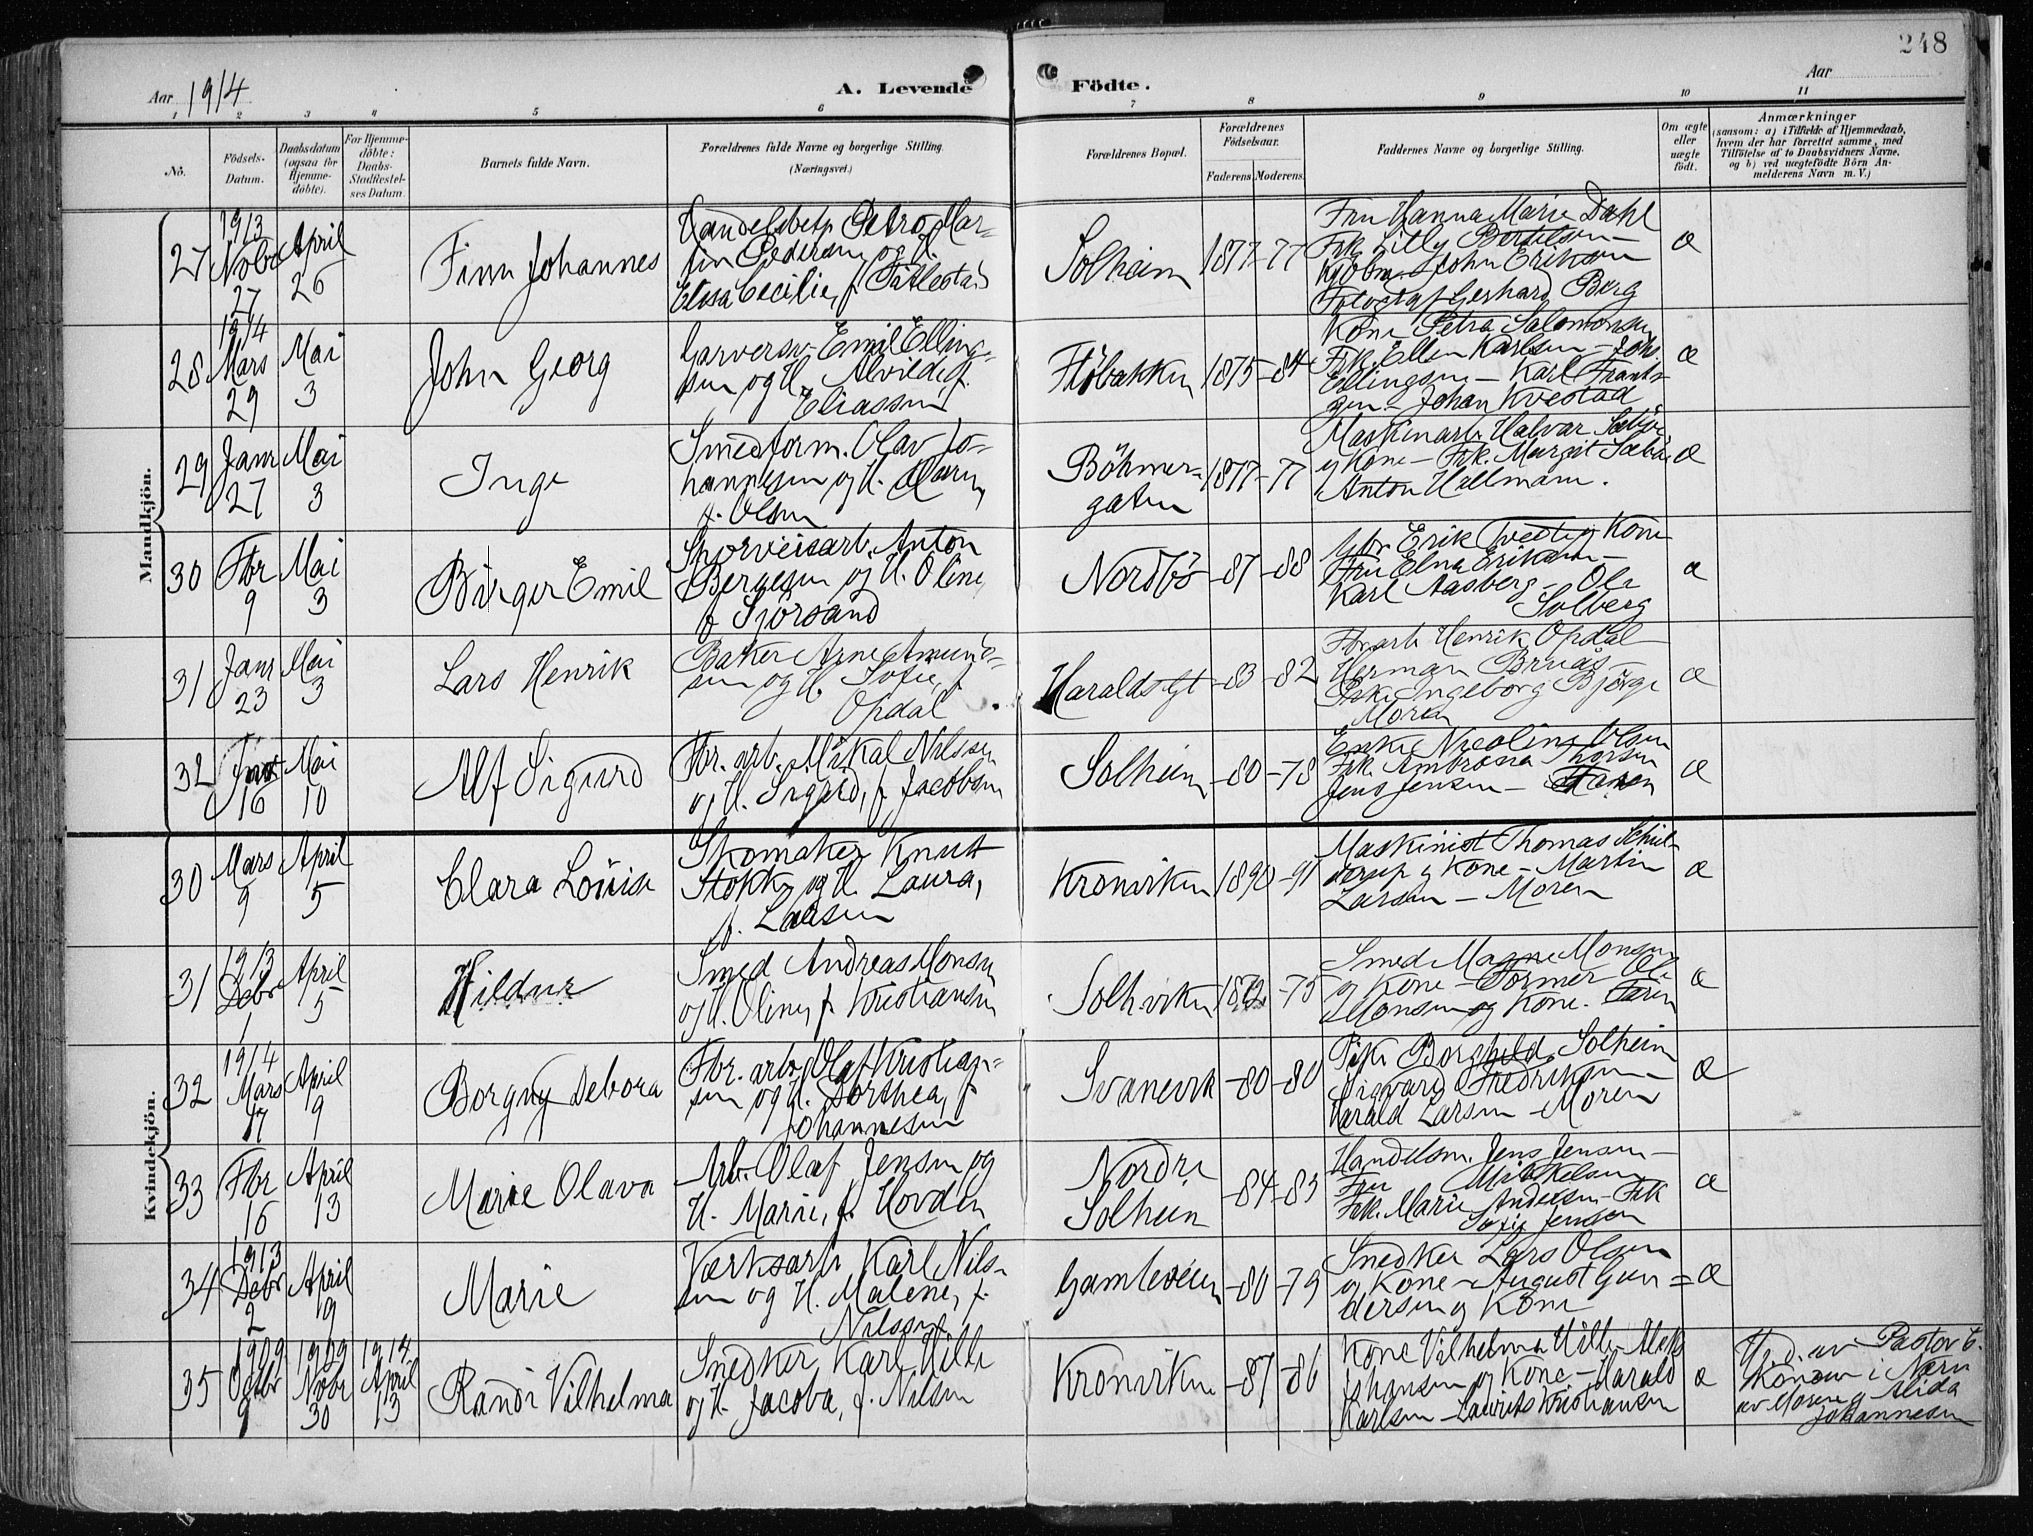 248
Aar 1914
A. Levende
Födte.
Aar
1 2 3 4 5 6 7 8 9 10 11
No.
Födsels-
Datum.
Daabsdatum
(ogsaa for
Hjemme-
döbte).
For Hjemme-
döbte:
Daabs-
Stadfæstel-
ses Datum.
Barnets fulde Navn.
Forældrenes fulde Navne og borgerlige Stilling.
(Næringsvei.)
Forældrenes Bopæl.
Forældrenes
Födselsaar.
Faderens. Moderens.
Faddernes Navne og borgerlige Stilling.
Om ægte
eller
uægte
födt.
Anmærkninger
(saasom: a) i Tilfælde af Hjemmedaab,
hvem der har forrettet samme, med
Tilföielse af to Daabsvidners Navne,
og b) ved uægtefödte Börn An-
melderens Navn m. V.)
Mandkjön.
27
1913
Nobr
27
April
26
Finn Johannes
Handelsbetj. Petro Mar-
tin Pedersen og H.
Elisa Cecilie, f.
Solheim
1877 -77
Fru Hanna Marie Dahl
Frk. Lilly Bertelsen-
John Eriksen
Fotograf Gerhard Berg
æ
28
1914
Mars
29
Mai
3
John Georg
Garversv. Emil Elling-
sen og H. Alvilde f.
Eliassen
Flöbakken
1875 -84
Kone Petra Salomonsen
Frk. Ellen Karlsen - Joh.
Ellingsen - Karl Frant-
zen - Johan Kvestad
æ
29
Janr
27
Mai
3
Inge
Smedform. Olav Jo-
hannesen og H.
f. Olsen
Böhmer-
gaten
1877 -77
Maskinarb. Halvar Sæbö
og Kone - Frk. Margit Sæbö
Anton Hallmann.
æ
30
Fbr
9
Mai
3
Birger Emil
Sporveisarb. Anton
Bergesen og H. Oline,
f. Sjörsand
Nordbö
-87 -88
Erik Tvedt og Kone
Fru Elna Eriksen -
Karl Aasberg - Ole
Solberg
æ
31
Janr
23
Mai
3
Lars Henrik
Baker Arne Amund-
sen og H. Sofie, f.
Opdal
Haraldsgt
-83 -82
Fbrarb. Henrik Opdal
Herman Bruås -
Frk. Ingeborg Bjørge
Moren
æ
32
16
Mai
10
Alf Sigurd
Fbr. arb. Mikal Nilssen
og H. Sigrid, f. Jacobsen
Solheim
-80 -78
Enke Nicoline Olsen
Frk. Ambrosia Thorsen
Jens Jensen - Faren
æ
Kvindekjön.
30
Mars
9
April
5
Clara Louise
Skomaker Knut
Stokke og H. Laura,
f. Larsen
Kronviken
1890 -91
Maskinist Thomas Schjel-
derup og Kone - Martin
Larsen - Moren
æ
31
1913
Debr
1
April
5
Hildur
Smed Andreas Monsen
og H. Oline, f. Kristiansen
Solhviken
1872 -75
Smed Magne Monsen
og Kone - Former Ole
Monsen og Kone. Faren
æ
32
1914
Mars
17
April
9
Borgny Debora
Fbr. arb. Olaf Kristian-
sen og H. Dorthea, f.
Johannesen
Svanevik
-80 -80
Pike Borghild Solheim
Sigvard Fredriksen -
Harald Larsen - Moren
æ
33
Fbr
16
April
13
Marie Olava
Arb. Olaf Jensen og
H. Marie, f. Hovden
Nordre
Solheim
-84 -83
Handelsm. Jens Jensen -
Fru Mikkelsen
Frk. Marie Andersen - Frk
Sofie Jensen
æ
34
1913
Debr
2
April
19
Marie
Værksarb. Karl Nils-
sen og H. Malene, f.
Nilssen
Gamleveien
-80 -79
Snedker Lars Olsen
og Kone - August Gun-
dersen og Kone
æ
35
1909
Octbr
9
1909
Nobr
30
1914
April
13
Randi Vilhelma
Snedker Karl Hille
og H. Jacoba, f. Nilsen
Kronviken
-87 -86
Kone Vilhelma Hille
Johansen og Kone - Harald
Karlsen - Laurits Kristiansen
æ
Hj. d. av Pastor C.
i
av Moren og Alida
Johannesen